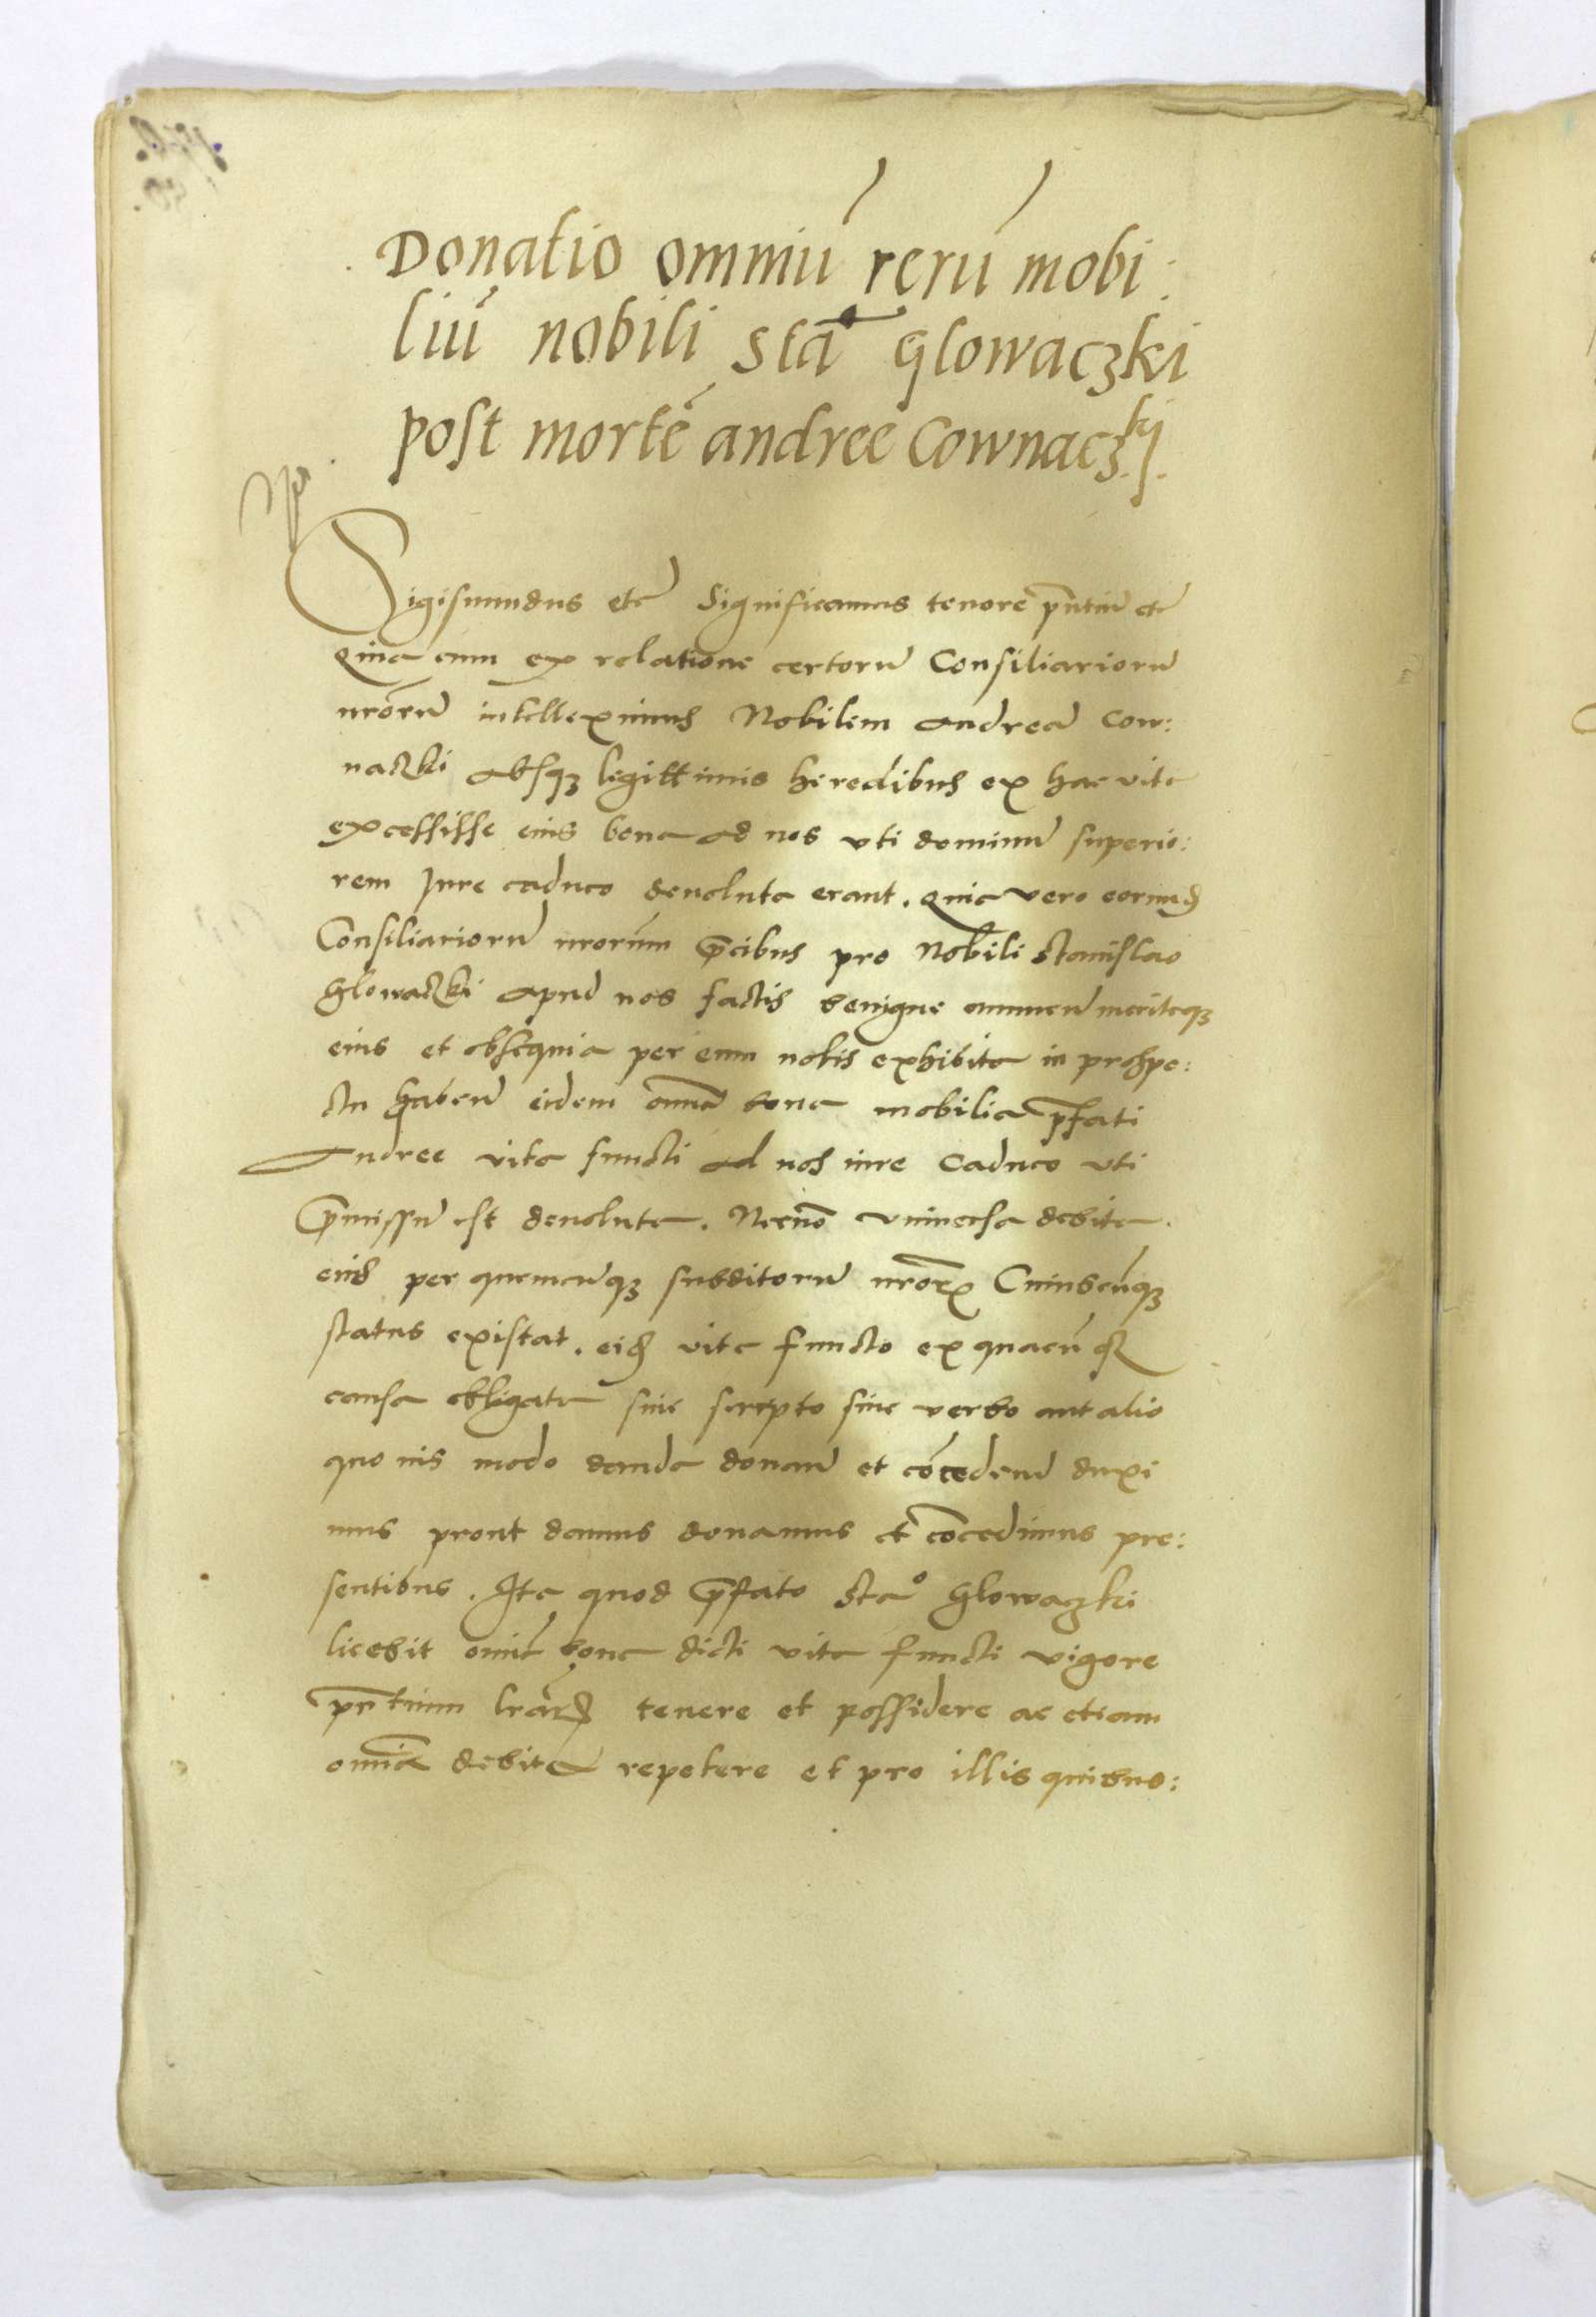 Donatio omniũ rerũ mobi:
liũ nobili Sta Glowaczki
post mortẽ andree Cownaczkj.
Sigismundus etc Significamus tenore pñtiũ etc
Quia cum ex relatione certorũ Consiliariorũ
nrõrũ intelleximus Nobilem Andreã Cow:
naczki absqꝫ legittimis heredibus ex hac vita
excessisse eius bona ad nos vti dominũ superio:
rem Jure caduco deuoluta erant. Quia vero eorund
Consiliariorũ nrorum p̃cibus pro Nobili Stanislao
Glowaczki apud nos factis benigne annuen̄ meritaqꝫ
eius et obsequia per eum nobis exhibita in prospe:
ctu haben̄ eidem omĩa bona mobilia p̃fati
Andree vita functi ad nos iure caduco vti
p̃missũ est deuoluta. Necnõ vniuersa debita.
eius per quemcũqꝫ subditorũ nrõrꝝ Cuiuscũqꝫ
status existat. eid vita functo ex quacũqꝫ
causa obligata siue scripto siue verbo aut alio
quo uis modo danda donan̄ et cõceden̄ duxi
mus prout damus donamus et cõcedimus pre:
sentibus. Ita quod p̃fato Sta° Glowaczki
licebit omĩa bona dicti vita functi vigore
pñtium lrãrꝝ tenere et possidere ac etiam
omĩa debita repetere et pro illis quibus: